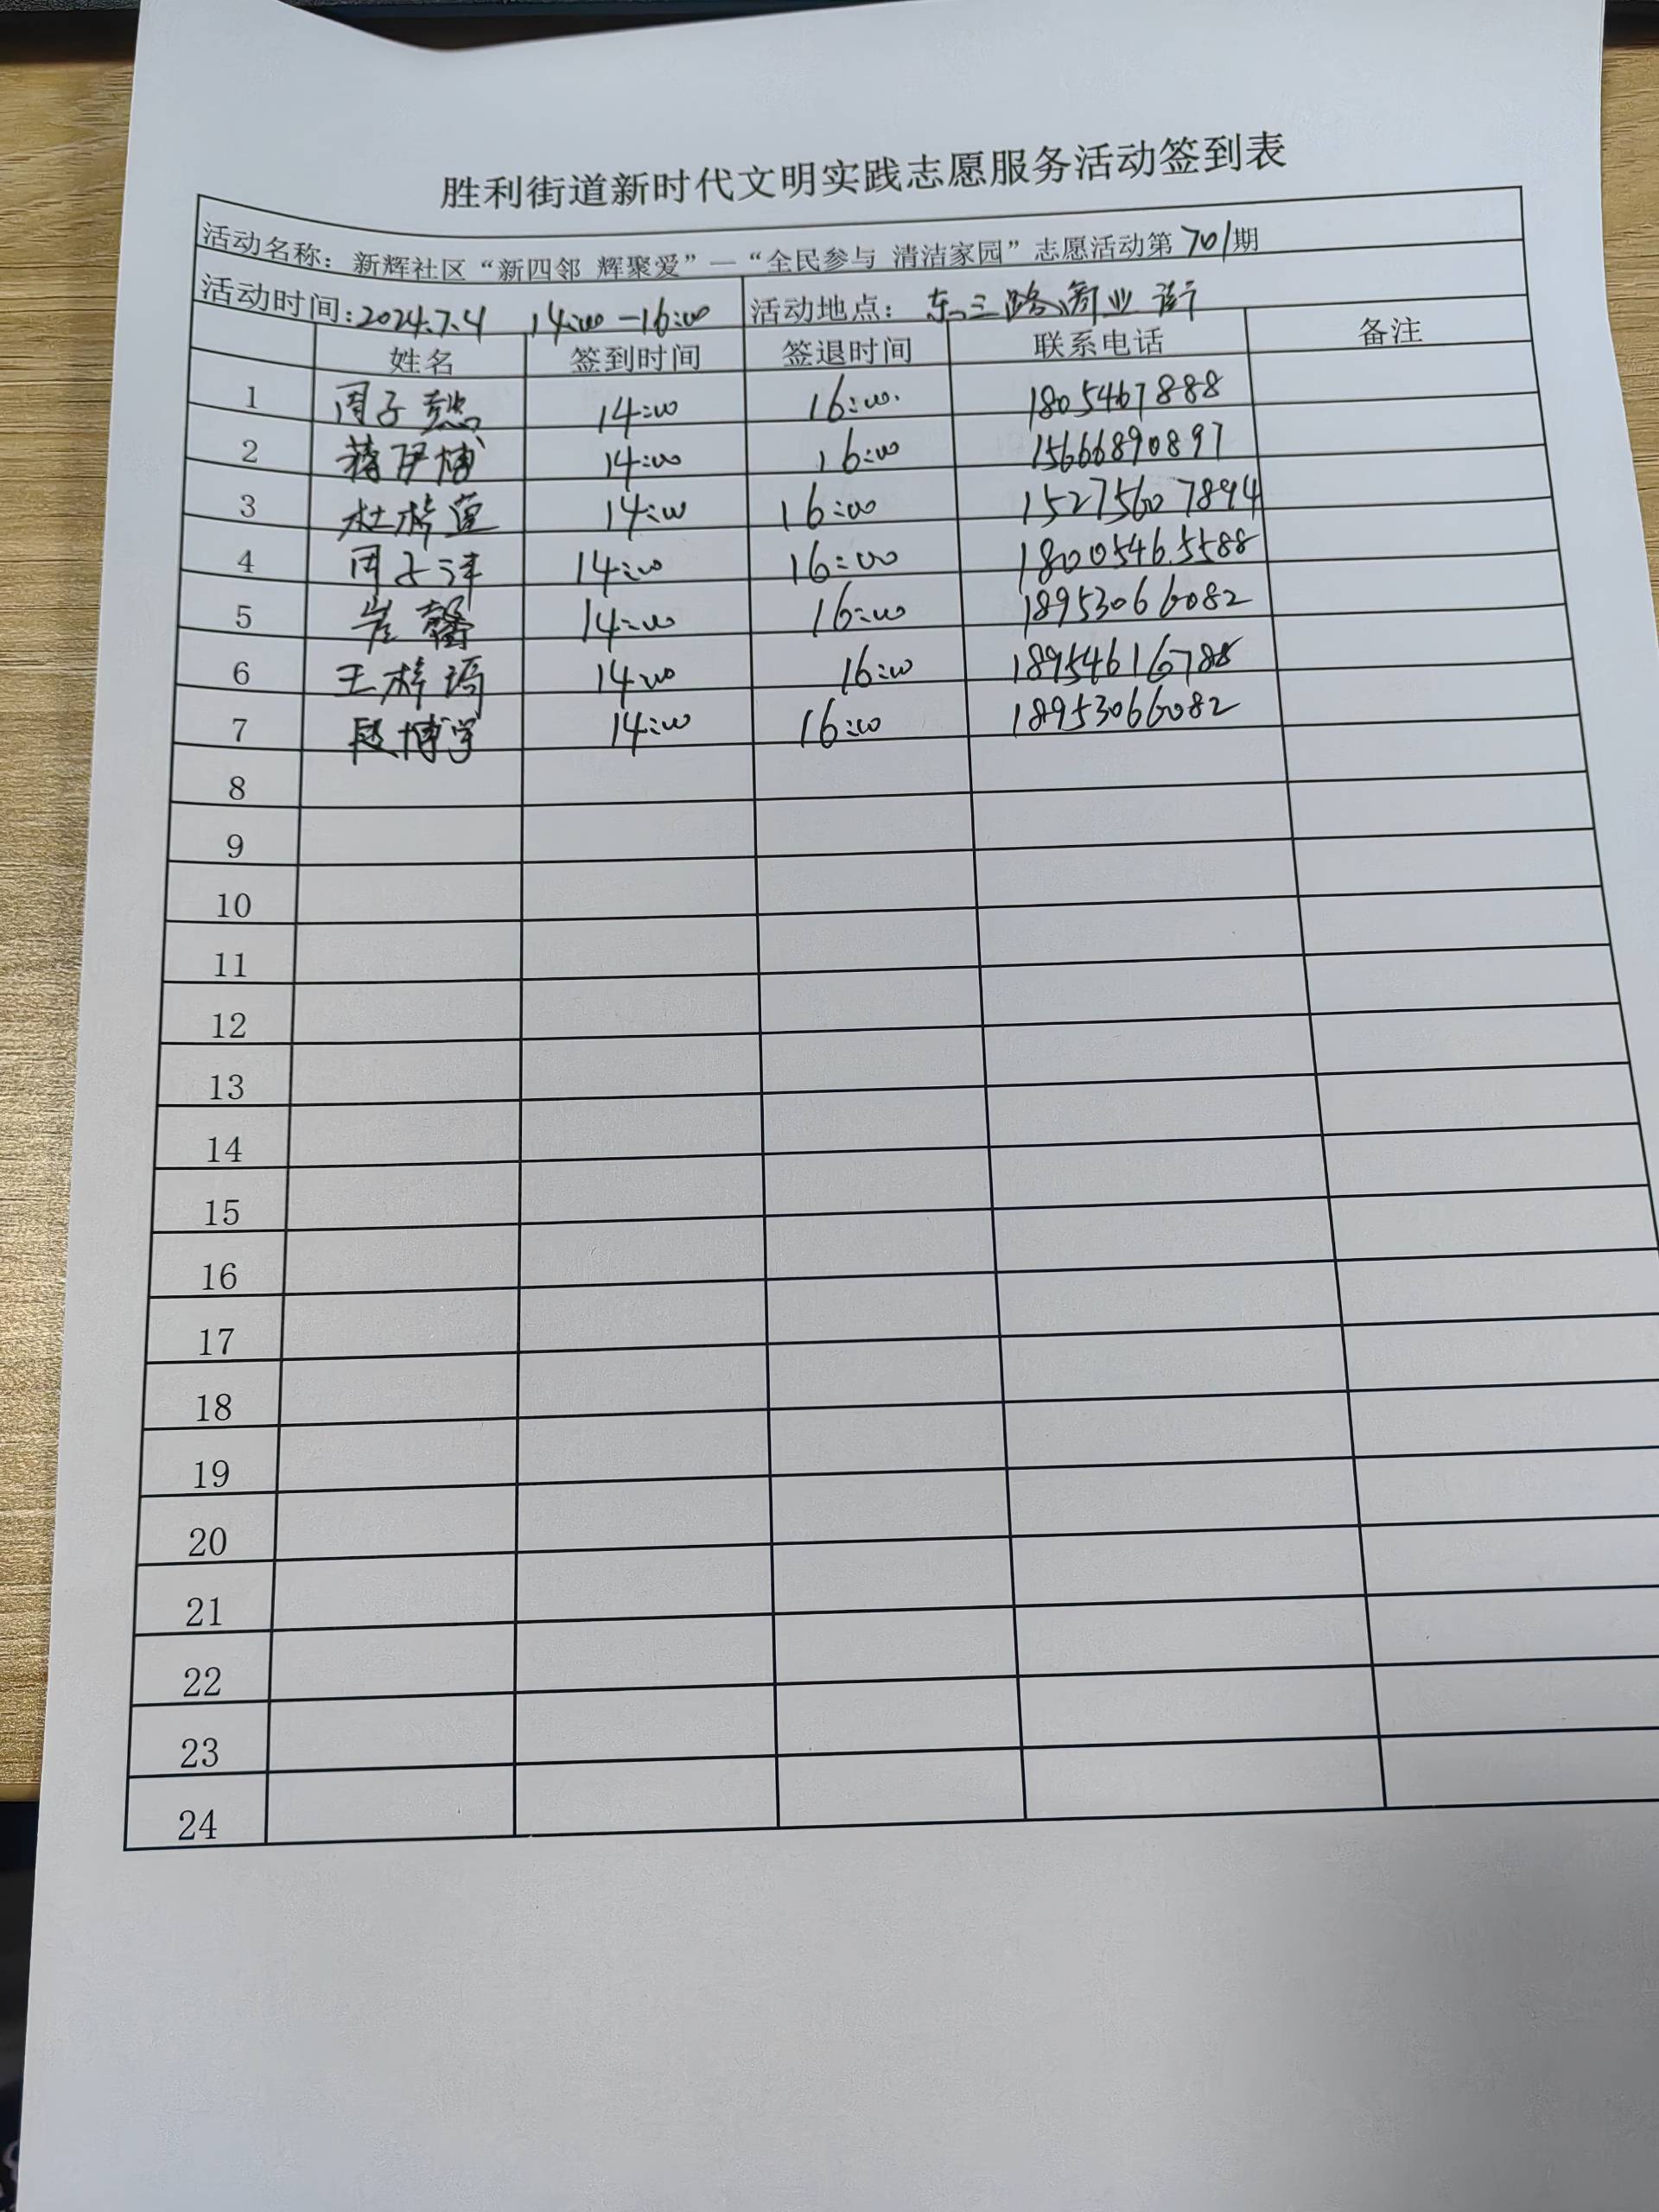 胜利街道新时代文明实践志愿服务活动签到表
活动名称：新辉社区“新四邻 辉聚爱”—“全民参与 清洁家园”志愿活动第701期
活动时间：2024.7.4 14:00-16:00 活动地点：东三路商业街
姓名 签到时间 签退时间 联系电话 备注
1 周子懿 14:00 16:00 1805467888
2 蒋伊博 14:00 16:00 15666890897
3 杜梓萱 14:00 16:00 15275607894
4 周子洋 14:00 16:00 18005465588
5 崔馨 14:00 16:00 18953066082
6 王梓 14:00 16:00 18954616788
7 段博学 14:00 16:00 18953066082
8
9
10
11
12
13
14
15
16
17
18
19
20
21
22
23
24